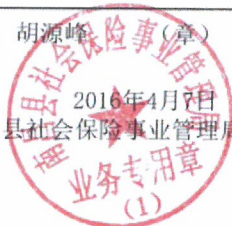 胡源峰 (章)
2016年4月7日
县社会保险事业管理局
南昌县社会保险事业管理局
业务专用章
(1)